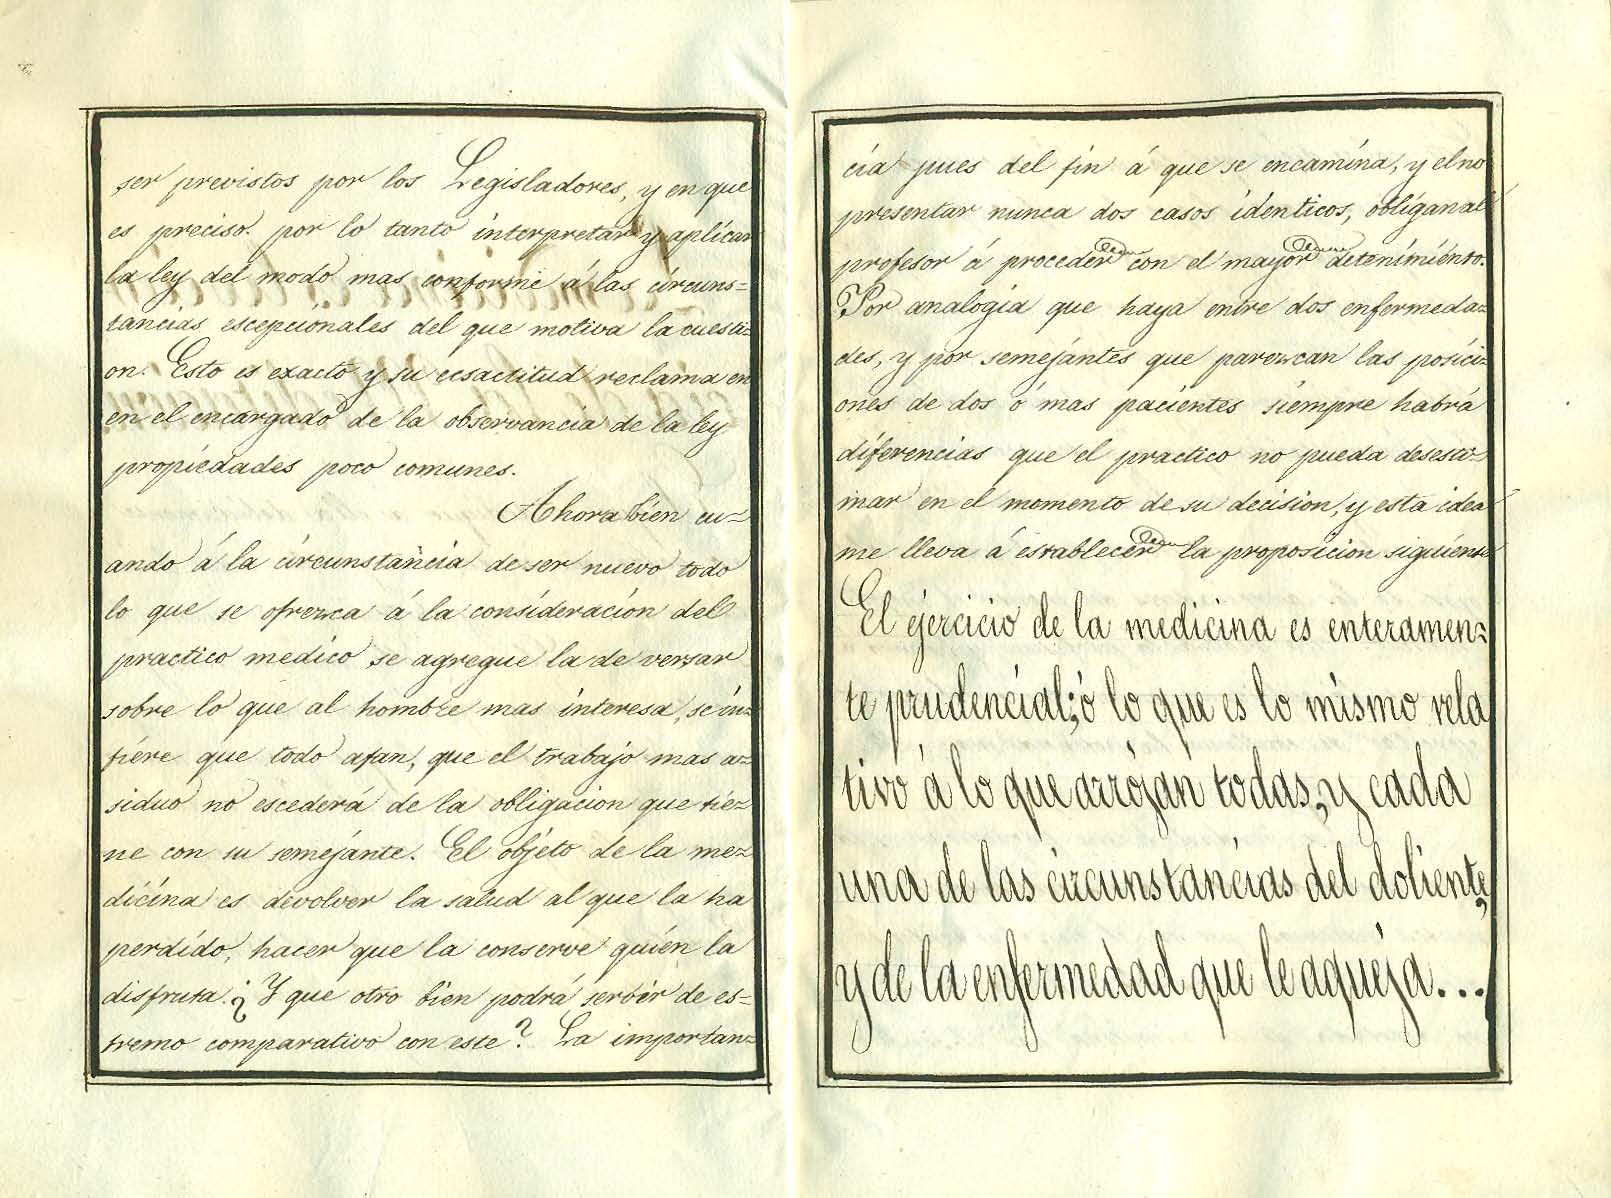 ser previstos por los Legisladores, y en que
es preciso por lo tanto interpretar y aplicar
la ley del modo mas conforme á las circuns=
tancias escepcionales del que motiva la cuesti=
on. Esto es exacto y su ecsactitud reclama en
en el encargado de la observancia de la ley
propiedades poco comunes.
Ahora bien cu=
ando á la circunstancia de ser nuevo todo
lo que se ofrezca á la consideración del
practico medico se agregue la de versar
sobre lo que al hombre mas interesa, se in=
fiere que todo afan, que el trabajo mas a=
siduo no escederá de la obligacion que tie=
ne con su semejante. El objeto de la me=
dicina es devolver la salud al que la ha
perdido, hacer que la conserve quien la
disfruta. ¿Y que otro bien podrá serbir de es=
tremo comparativo con este? La importan=
cia pues del fin á que se encamina, y el no
presentar nunca dos casos identicos, obligan al
profesor á proceder con el mayor detenimiento.
Por analogia que haya entre dos enfermeda=
des, y por semejantes que parezcan las posici=
ones de dos ó mas pacientes siempre habrá
diferencias que el practico no pueda desesti=
mar en el momento de su decision, y esta idea
me lleva á establecer la proposicion siguiente
El ejercicio de la medicina es enteramen=
te prudencial; ó lo que es lo mismo rela
tivo á lo que arrojan todas, y cada
una de las circunstancias del doliente,
y de la enfermedad que le aqueja...